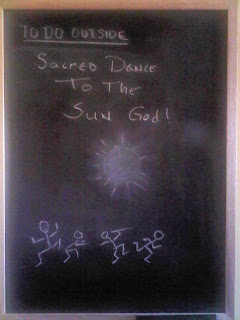 TO DO OUTSIDE
SACRED DANCE
TO THE
SUN GOD!